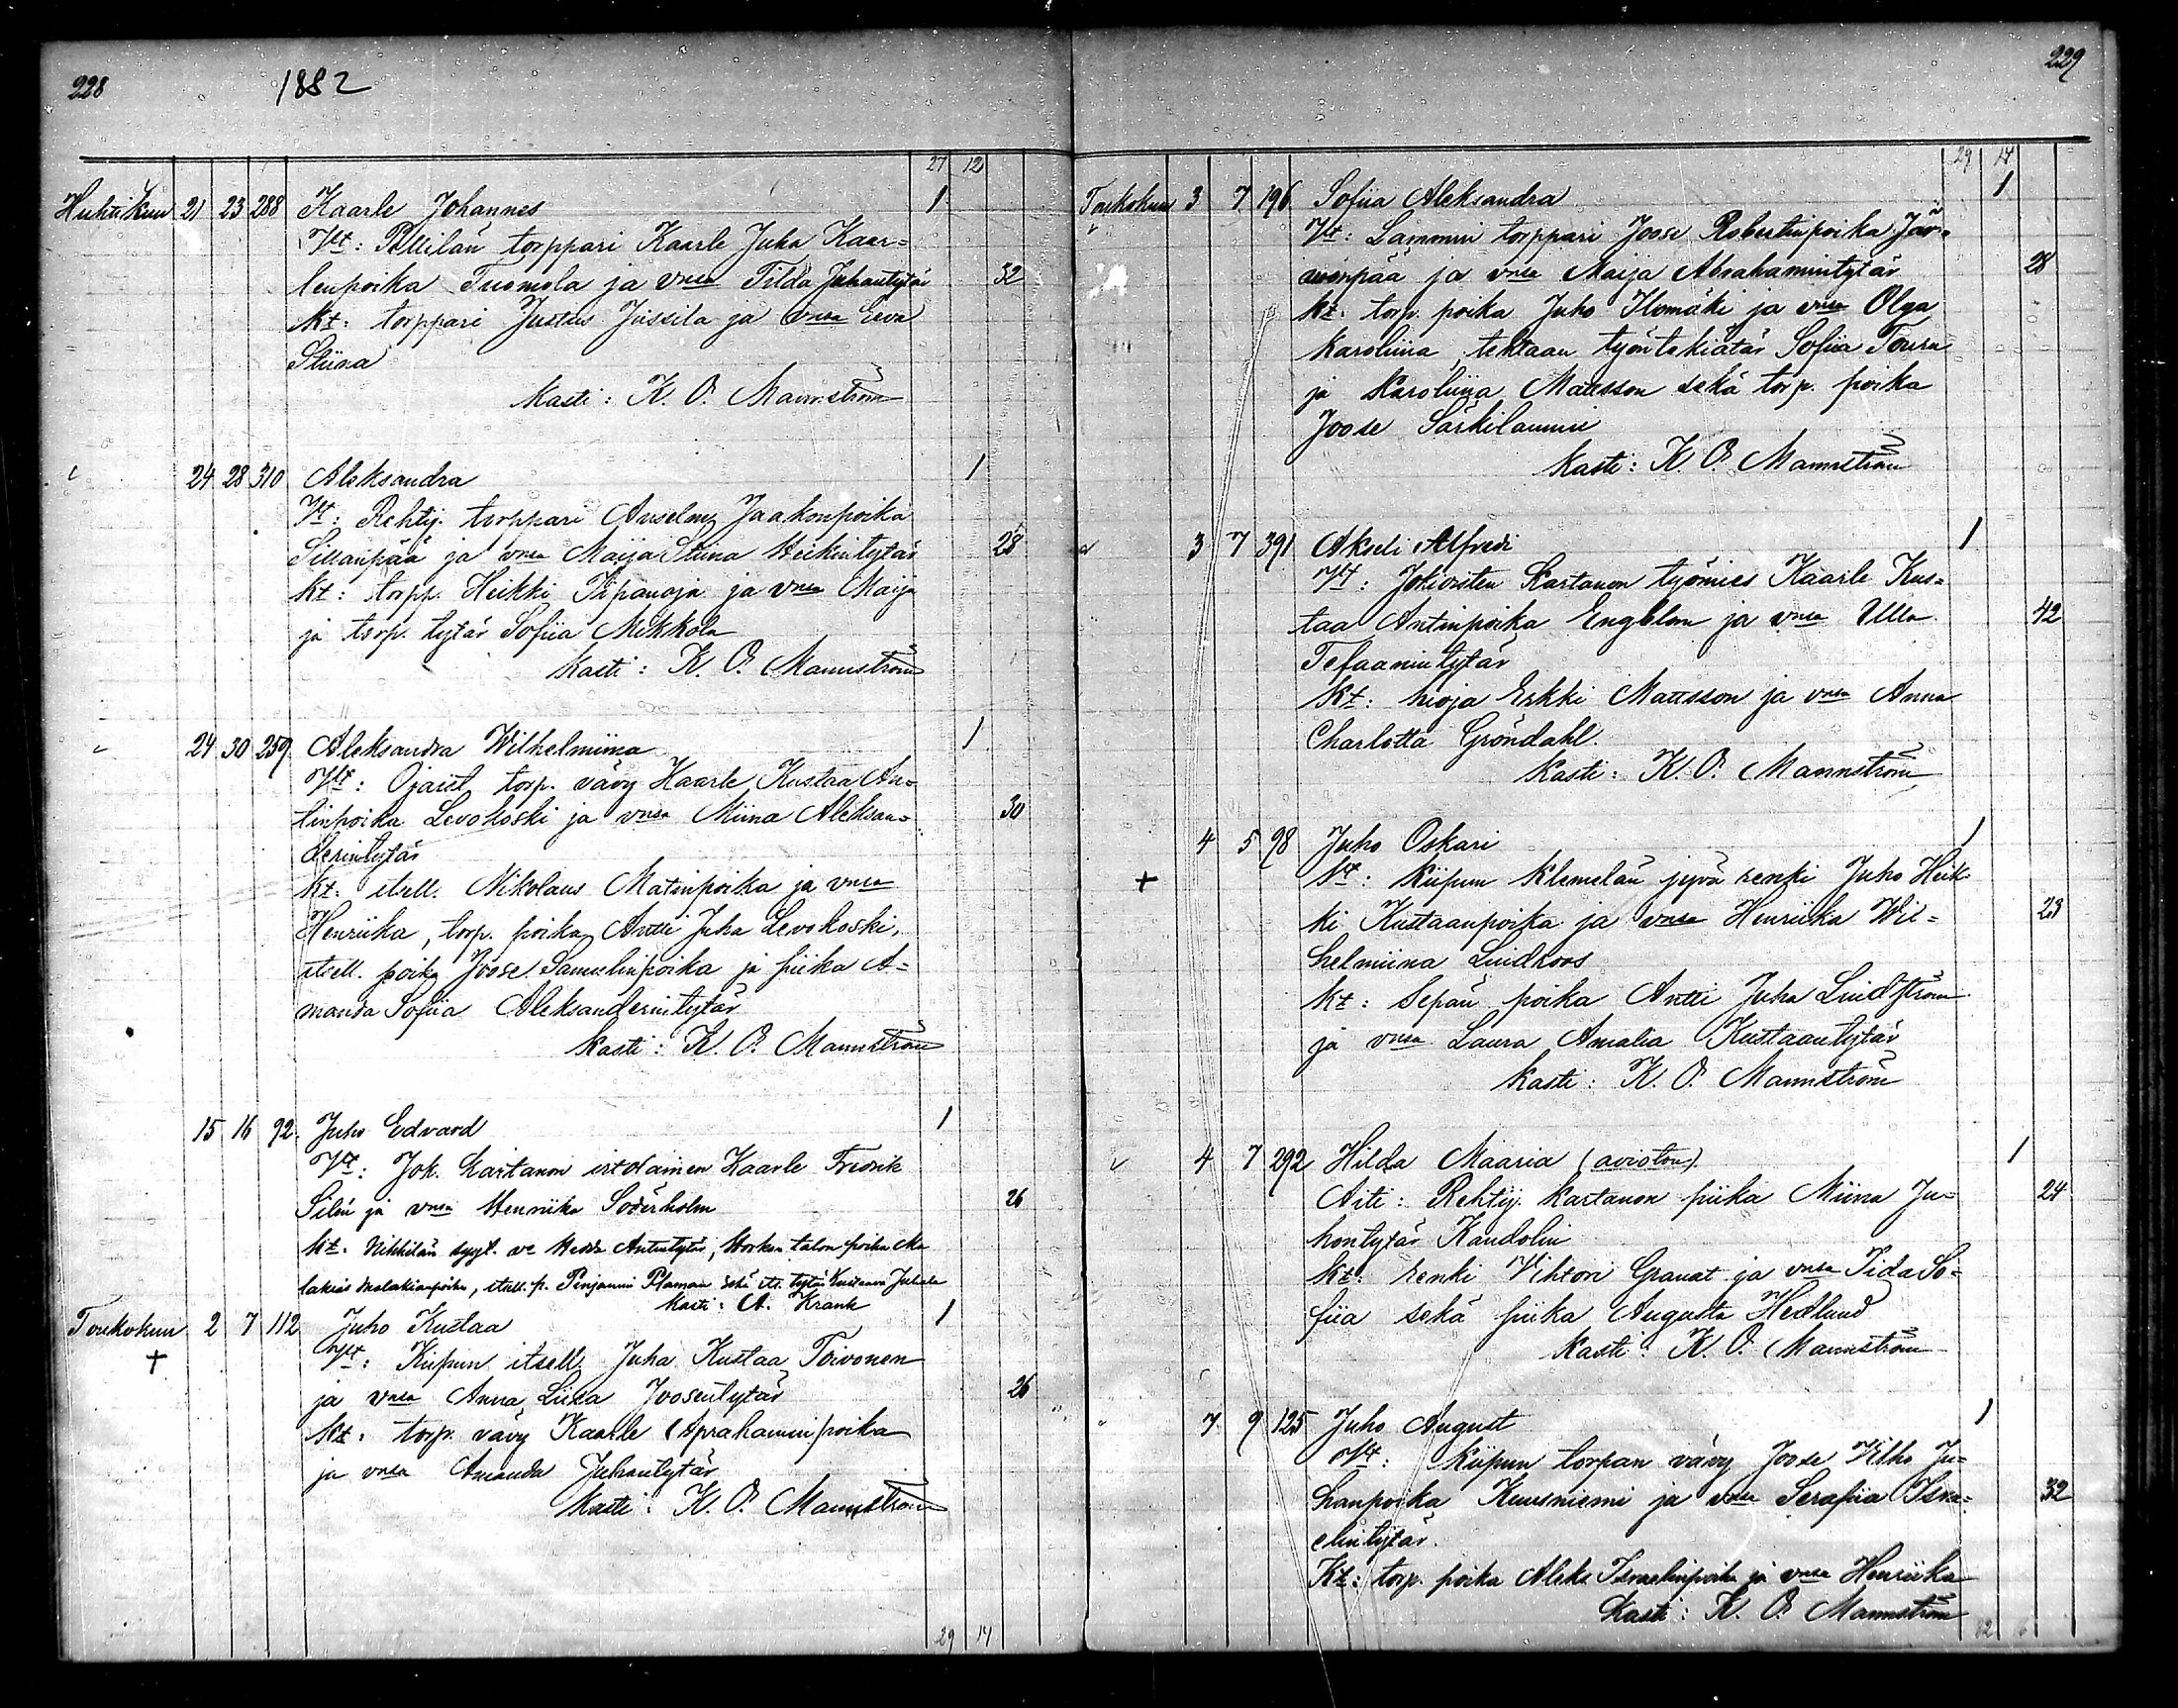 228
1882
27 12
Huhtikuu 21 23 288 Kaarle Johannes 1
Vt: torppari Kaarle Juha Kaar=
lenpoika Tuomola ja vmsa Tilda Juhantytär 32
Kt: torppari Justus Jussila ja vmsa Eeva
Stiina
Kasti: K. O. Mannström
24 28 310 Aleksandra 1
Vt: Rehtij. torppari Anselm Jaakonpoika
Sillanpää ja vmsa Maija Stiina Heikintytär 28
Kt: torpp. Heikki ja vmsa Maija
ja torp. tytär Sofiia Mikkola
Kasti: K. O. Mannström
24 30 259 Aleksandra Wilhelmiina 1
Vt: torp. vävy Kaarle Kustaa An=
tinpoika Levokoski ja vmsa Miina Aleksan= 30
derintytär
Kt: itsell. Nikolaus Matinpoika ja vmsa
Henriika, torp. poika Antti Juha Levokoski,
itsell. poika Joose Samulinpoika ja piika A=
manda Sofiia Aleksanderintytär
Kasti: K. O. Mannström
15 16 92 Juho Edvard 1
Vt: Jok. Kartanon irtolainen Kaarle Fredrik
Silin ja vmsa Henriika Söderholm 26
Kt. talon poika Ma
lakias Malakianpoika, itsell. p. sekä its. tytär Kustaava Juhala
Kasti: A. Krank
Toukokuu 2 7 112 Juho Kustaa 1
+ Vt: Kiipun itsell. Juha Kustaa Toivonen
ja vmsa Anna Liisa Joosentytär 26
Kt: torp. vävy Kaarle Aprahaminpoika
ja vmsa Amanda Juhantytär
Kasti: K. O. Mannström
29 14
229
29 14
Toukokuu 3 7 196 Sofiia Aleksandra 1
Vt: Lammin torppari Joose Robertinpoika Jär=
venpää ja vmsa Maija Abrahamintytär 28
Kt: torp. poika Juho Ilomäki ja vmsa Olga
Karoliina, tehtaan työntekiätär Sofiia
ja Karoliina Mattsson sekä torp. poika
Joose Särkilammi
Kasti: K. O. Mannström
3 7 391 Akseli Alfredi 1
Vt: Jokioisten Kartanon työmies Kaarle Kus=
taa Antinpoika Engblom ja vmsa Ulla 42
Tefaanintytär
Kt: Erkki Mattsson ja vmsa Anna
Charlotta Gröndahl.
Kasti: K. O. Mannström
4 5 98 Juho Oskari 1
+ Vt: Kiipun Klemelän jyvä renki Juho Heik=
ki Kustaanpoika ja vmsa Henriika Wil= 23
helmiina Lindroos
Kt: Sepän poika Antti Juha Lindström
ja vmsa Laura Amalia Kustaantytär
Kasti: K. O. Mannström
4 7 292 Hilda Maaria (avioton) 1
Äiti: Rehtij. Kartanon piika Miina Ju= 24
hontytär Kandolin
Kt: renki Vihtori Granat ja vmsa Iida So=
fiia sekä piika Augusta Hedlund
Kasti: K. O. Mannström
7 9 125 Juho August 1
Vt: Kiipun torpan vävy Joose Vilho Ju=
hanpoika Kuusniemi ja vmsa Serafiia Isra= 32
elintytär.
Kt: torp. poika Aleks. Israelinpoika ja vmsa Henriika
Kasti: K. O. Mannström